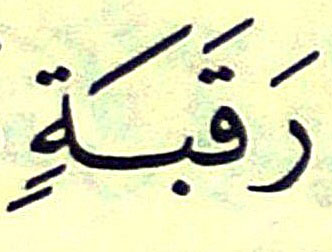 رَقَبَةٍ